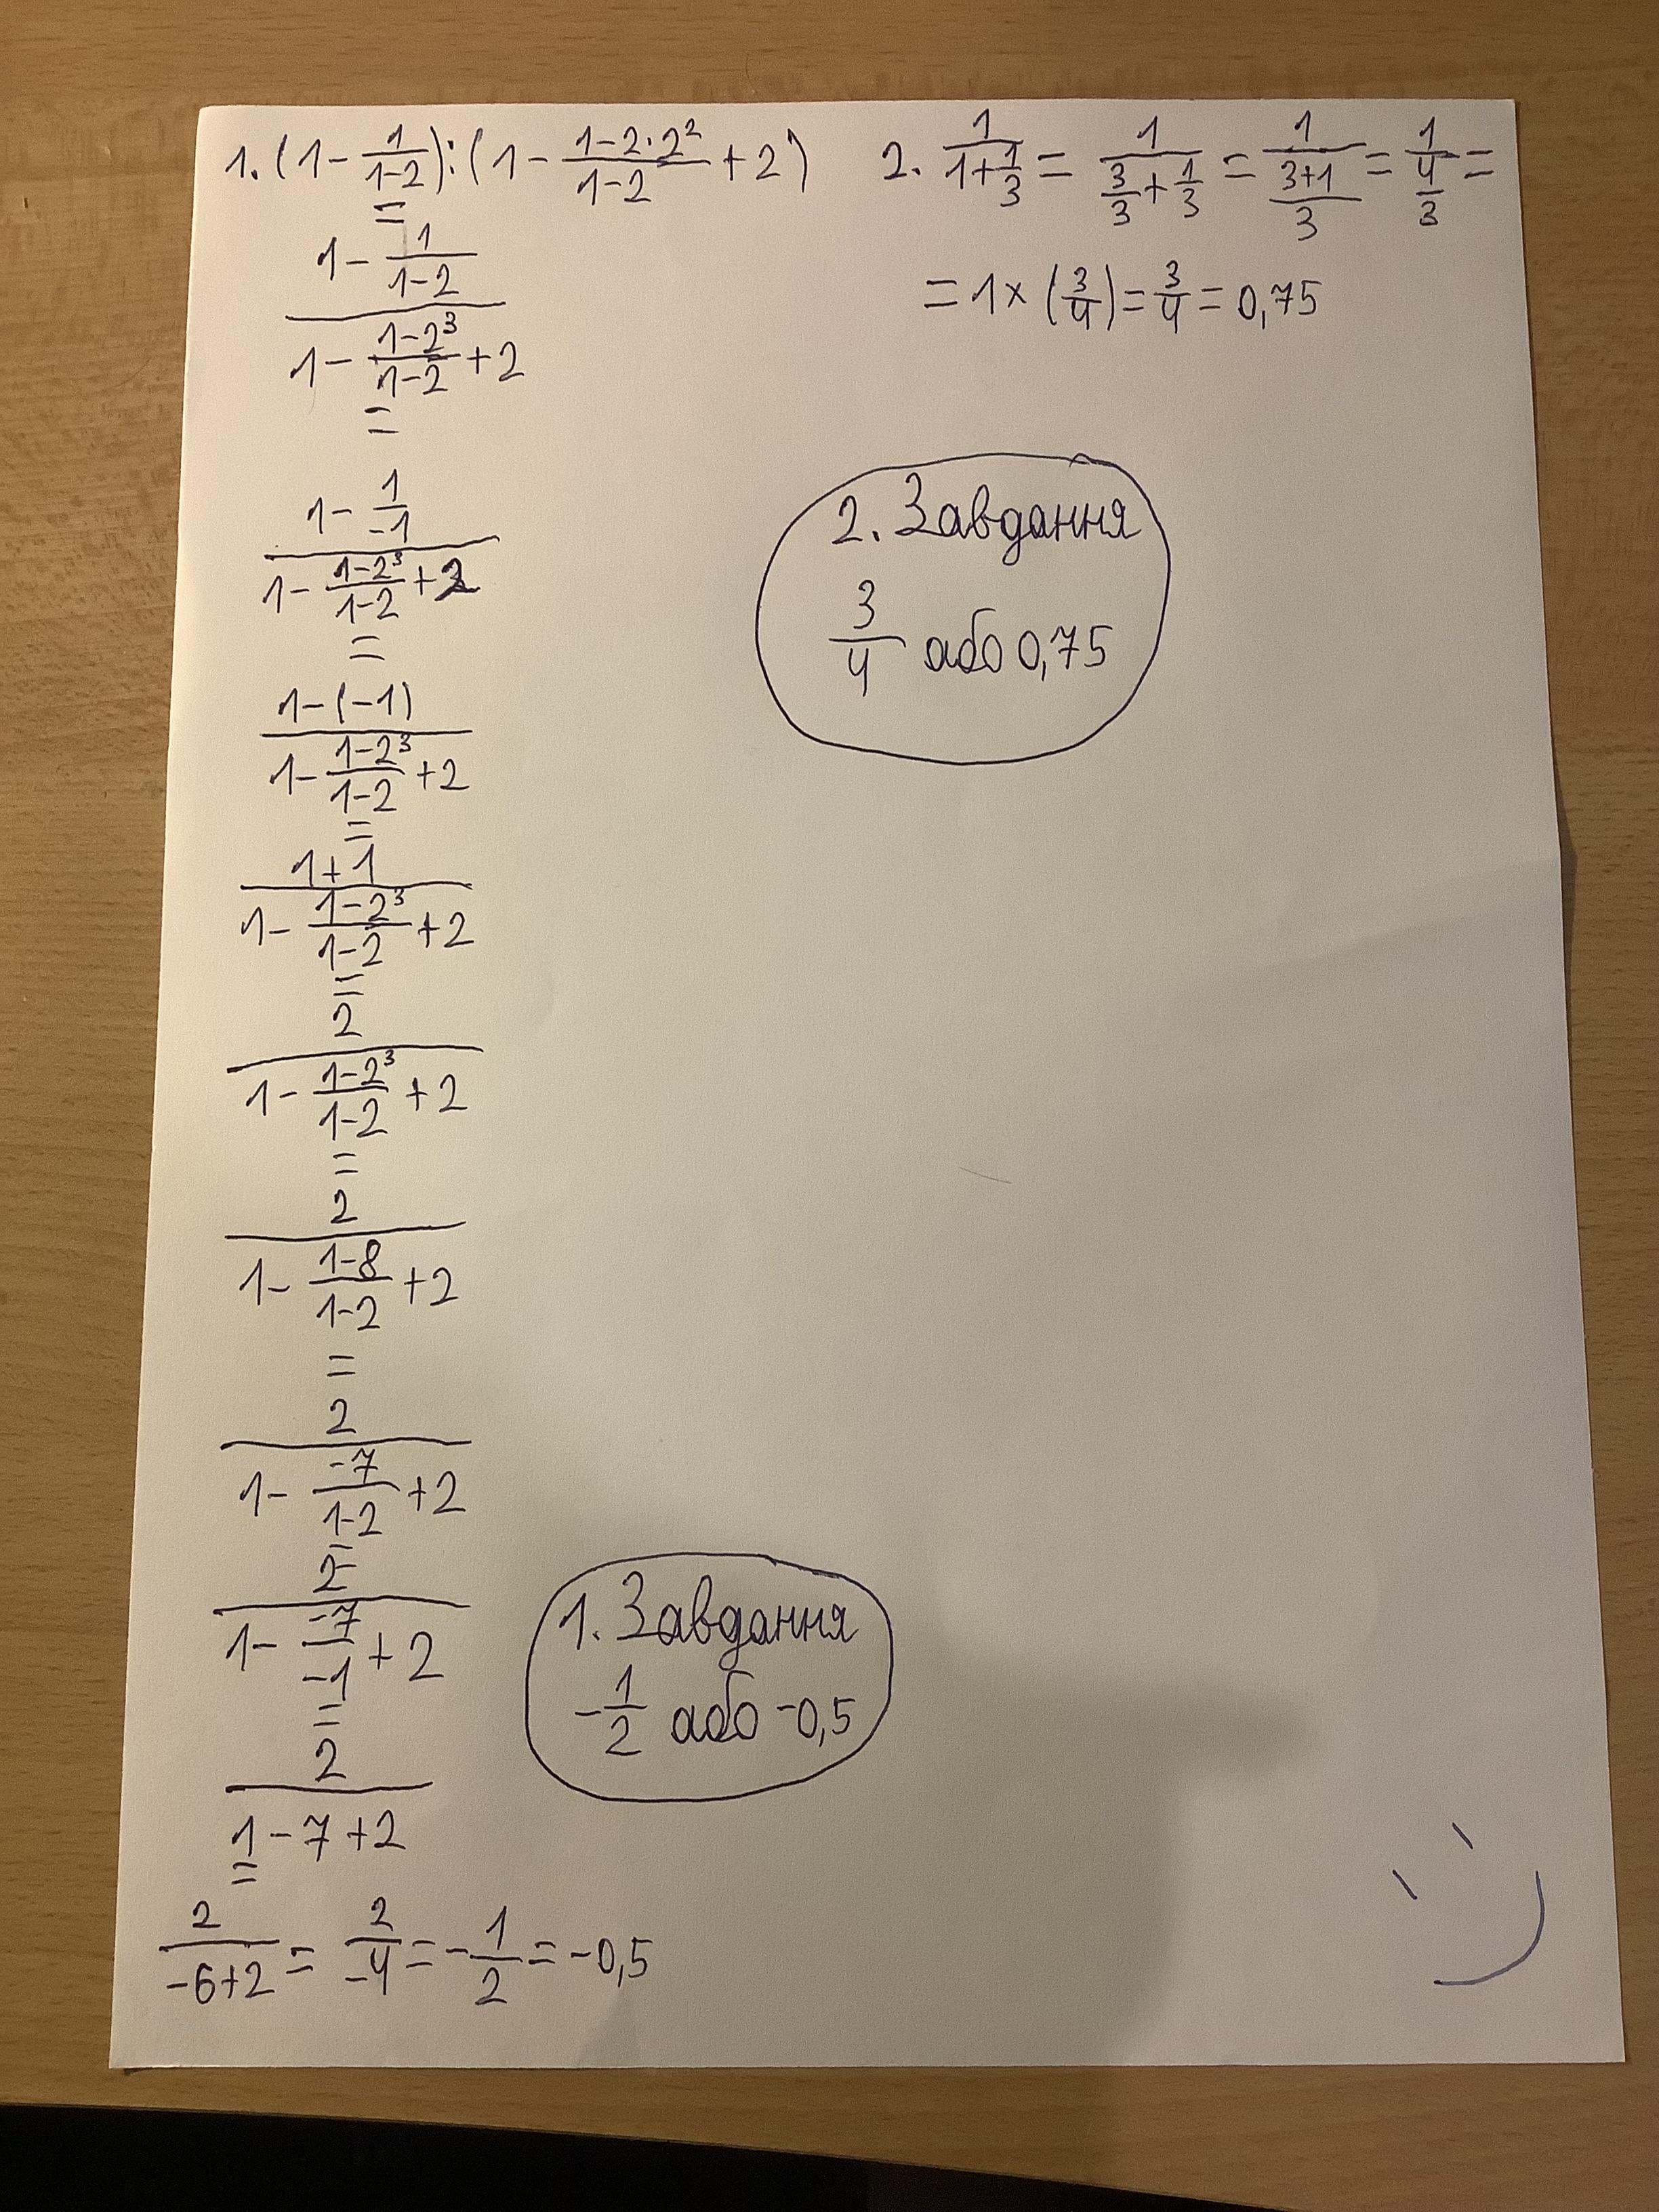 1. (1 - \frac{1}{1-2}) : (1 - \frac{1-2·2²}{1-2} + 2)
=
\frac{1 - \frac{1}{1-2}}{1 - \frac{1-2³}{1-2} + 2}
=
\frac{1 - \frac{1}{-1}}{1 - \frac{1-2³}{1-2} + 2}
=
\frac{1-(-1)}{1 - \frac{1-2³}{1-2} + 2}
=
\frac{1+1}{1 - \frac{1-2³}{1-2} + 2}
=
\frac{2}{1 - \frac{1-2³}{1-2} + 2}
=
\frac{2}{1 - \frac{1-8}{1-2} + 2}
=
\frac{2}{1 - \frac{-7}{1-2} + 2}
=
\frac{2}{1 - \frac{-7}{-1} + 2}
=
\frac{2}{1-7+2}
=
\frac{2}{-6+2} = \frac{2}{-4} = -\frac{1}{2} = -0,5
1. Завдання
-\frac{1}{2} або -0,5
2. \frac{1}{1+\frac{1}{3}} = \frac{1}{\frac{3}{3}+\frac{1}{3}} = \frac{1}{\frac{3+1}{3}} = \frac{1}{\frac{4}{3}} =
= 1 × (\frac{3}{4}) = \frac{3}{4} = 0,75
2. Завдання
\frac{3}{4} або 0,75